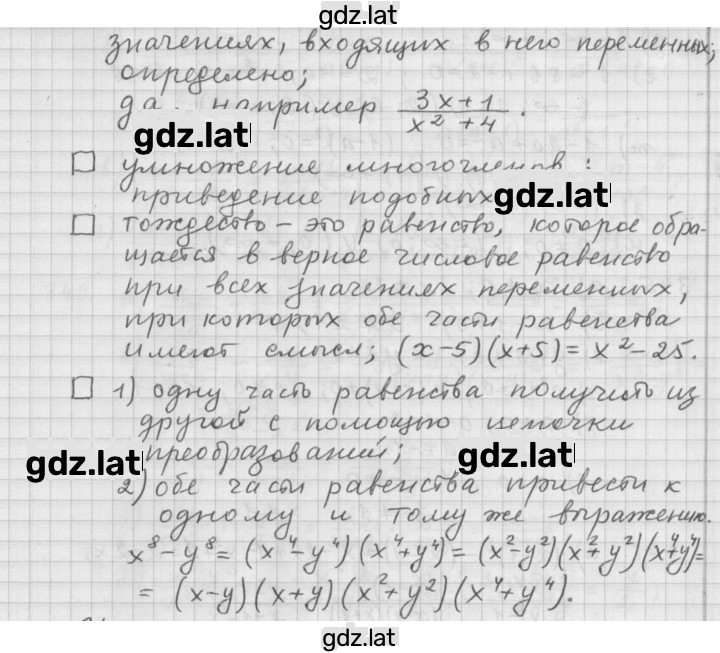 gdz.lat
значениях, входящих в него переменных,
определено;
да, например \frac{3x+1}{x^2+4}.
gdz.lat
□ умножение многочленов;
приведение подобных
gdz.lat
□ тождество – это равенство, которое обра-
щается в верное числовое равенство
при всех значениях переменных,
при которых обе части равенства
имеют смысл; (x-5)(x+5) = x² - 25.
□ 1) одну часть равенства получить из
другой с помощью цепочки
преобразований;
gdz.lat
gdz.lat
2) обе части равенства привести к
одному и тому же выражению.
x⁸-y⁸= (x⁴-y⁴)(x⁴+y⁴) = (x²-y²)(x²+y²)(x⁴+y⁴)=
= (x-y)(x+y)(x²+y²)(x⁴+y⁴).
gdz.lat